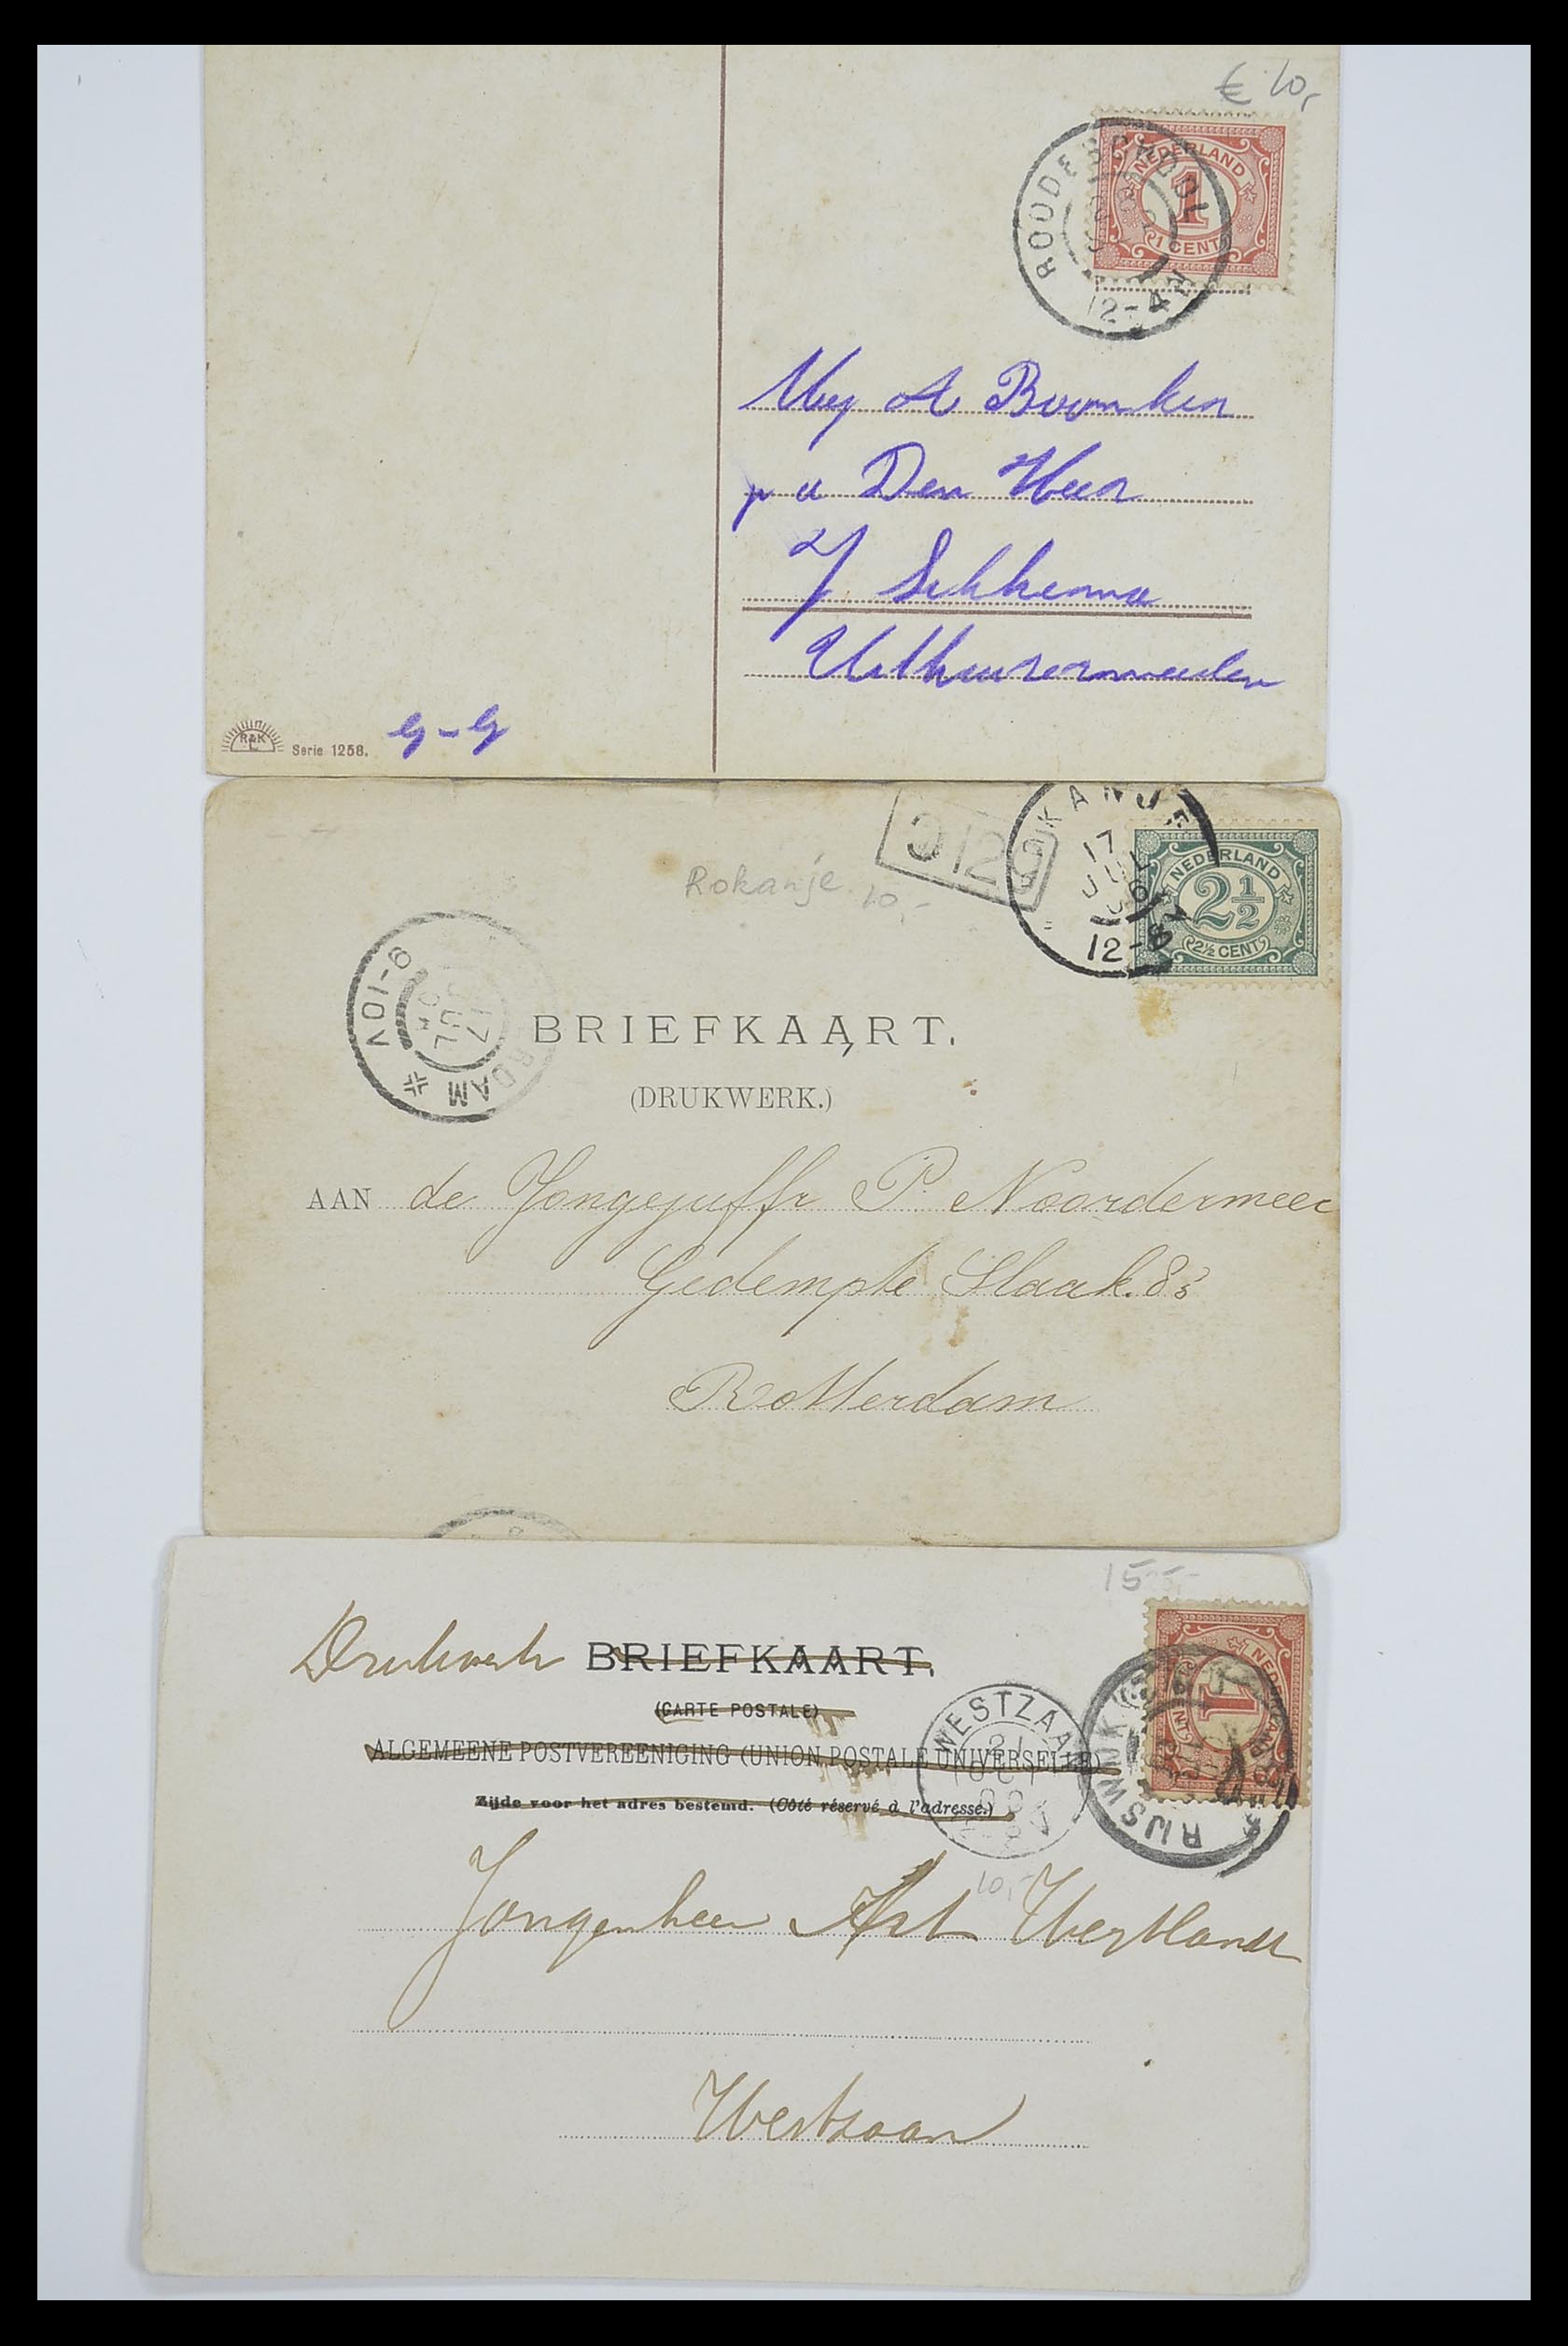 € 10,-
NEDERLAND
1
1 CENT
ROODESCHOOL
12-4N
Mej A Boomker
p a Den Heer
J Sikkema
Uithuizermeeden
RAK
L
Serie 1258.
G-G
ROKANJE
17
JUL
12-8V
NEDERLAND
2½
2½ CENT
Rokanje
10,-
9-10V
17
JUL
RDAM
BRIEFKAART.
(DRUKWERK.)
AAN de Jongejuffr P. Noordermeer
Gedempte Slaak. 83
Rotterdam
15,-
Drukwerk BRIEFKAART.
(CARTE POSTALE)
ALGEMEENE POSTVEREENIGING (UNION POSTALE UNIVERSELLE)
Zijde voor het adres bestemd. (Côté réservé à l'adresse.)
WESTZAAN
OCT
RIJSWIJK
NEDERLAND
1
10,-
Jongenheer Art
Westzaan